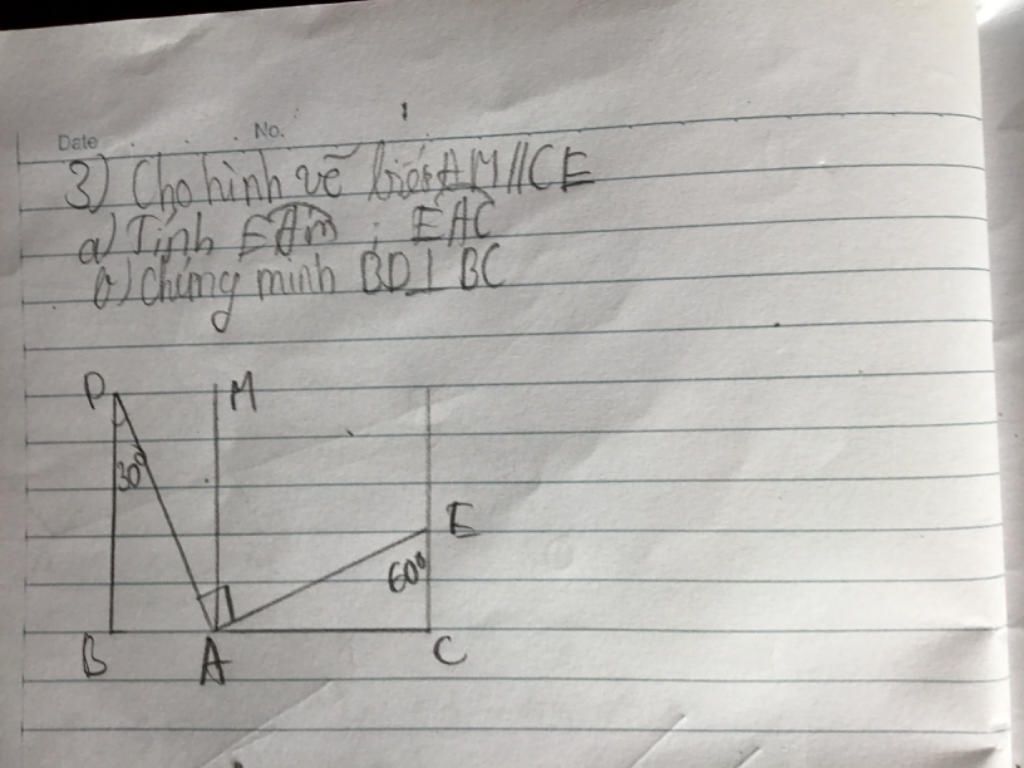 Date No.
3) Cho hình vẽ biết AM//CE
a) Tính EAM ; EAC
b) Chứng minh BD⊥BC
D M
30°
E
60°
B A C